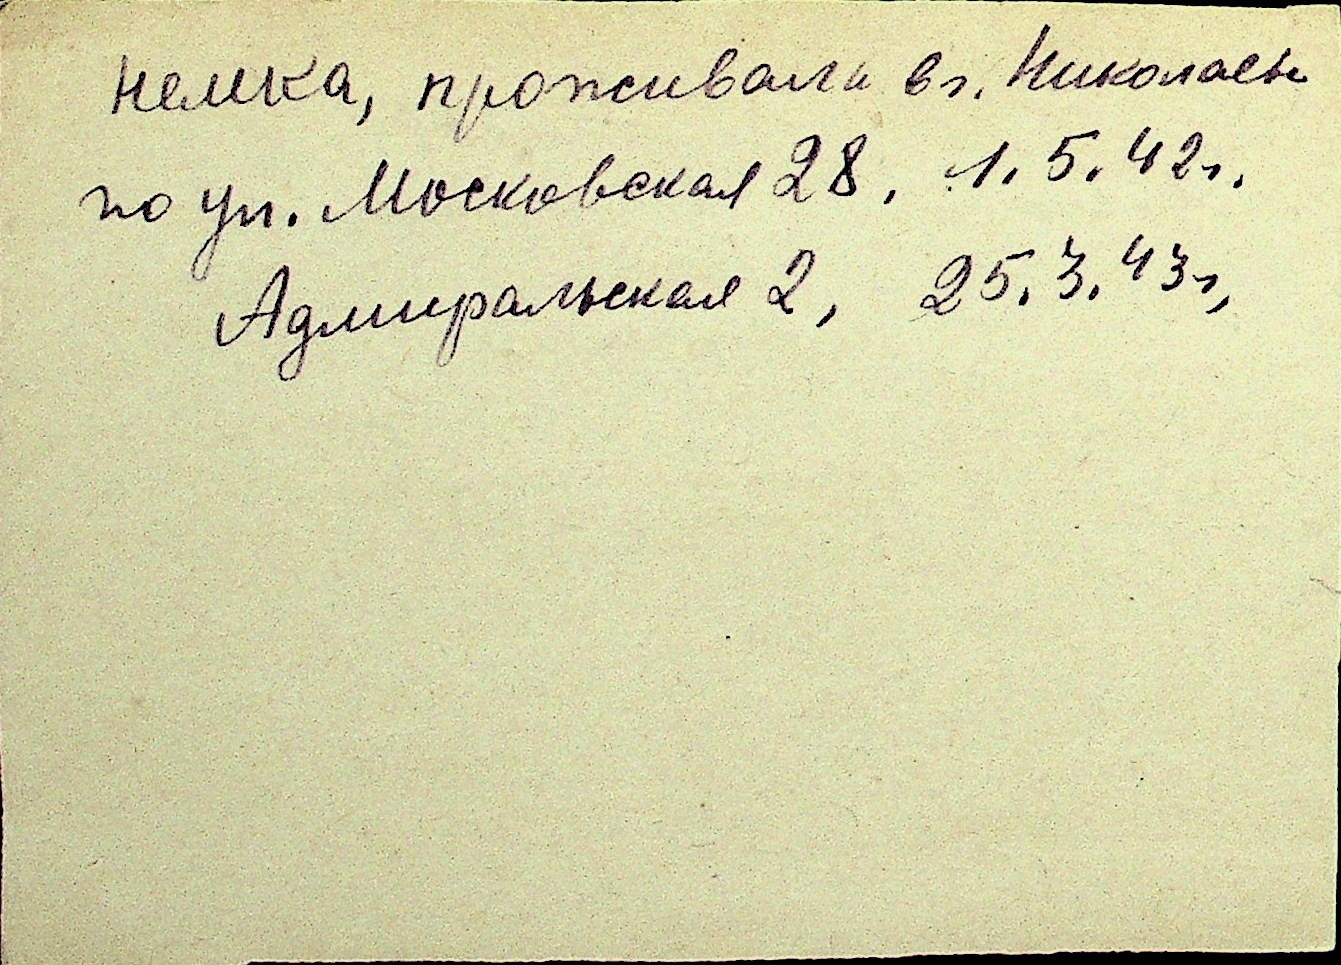 немка, проживала в г. Николаеве
по ул. Московская 28, 1.5.42г.
Адмиральская 2, 25.3.43г,